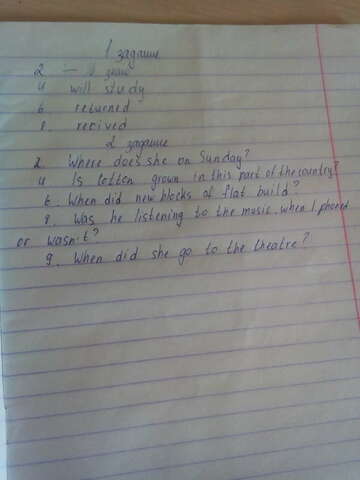 1 задание
2. —
4 will study
6. returned
8. recived
2 задание
2. Where does she on Sunday?
4. Is cotton grown in this part of the country?
6. When did new blocks of flat build?
8. Was he listening to the music, when I phoned
or wasn't?
9. When did she go to the theatre?